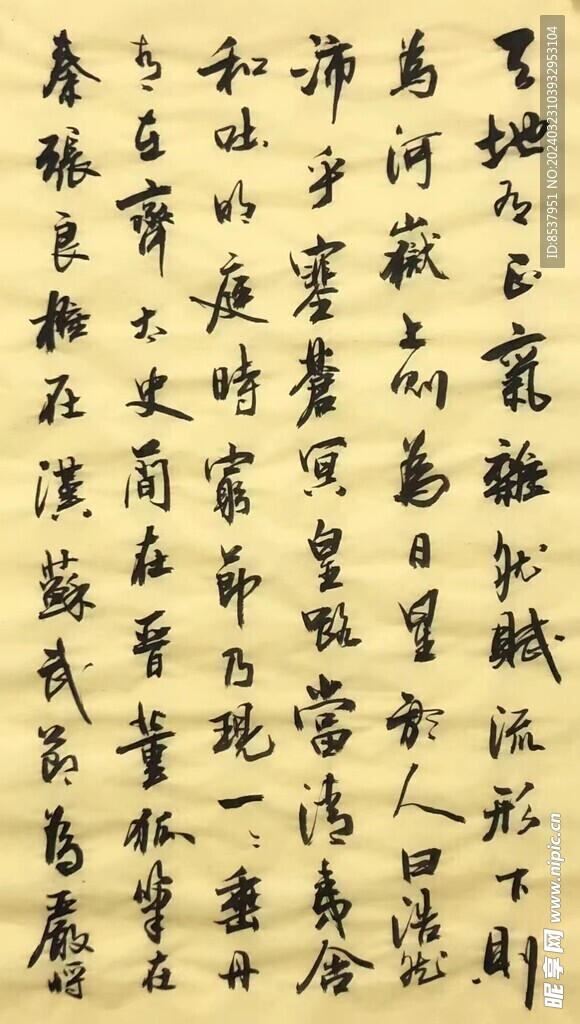 天地有正氣雜然賦流形下則
為河嶽上則為日星於人曰浩然
沛乎塞蒼冥皇路當清夷含
和吐明庭時窮節乃現一〻垂丹
青在齊太史簡在晉董狐筆在
秦張良椎在漢蘇武節為嚴將
ID:8537951 NO:20240323103932953104
昵享网 www.nipic.cn